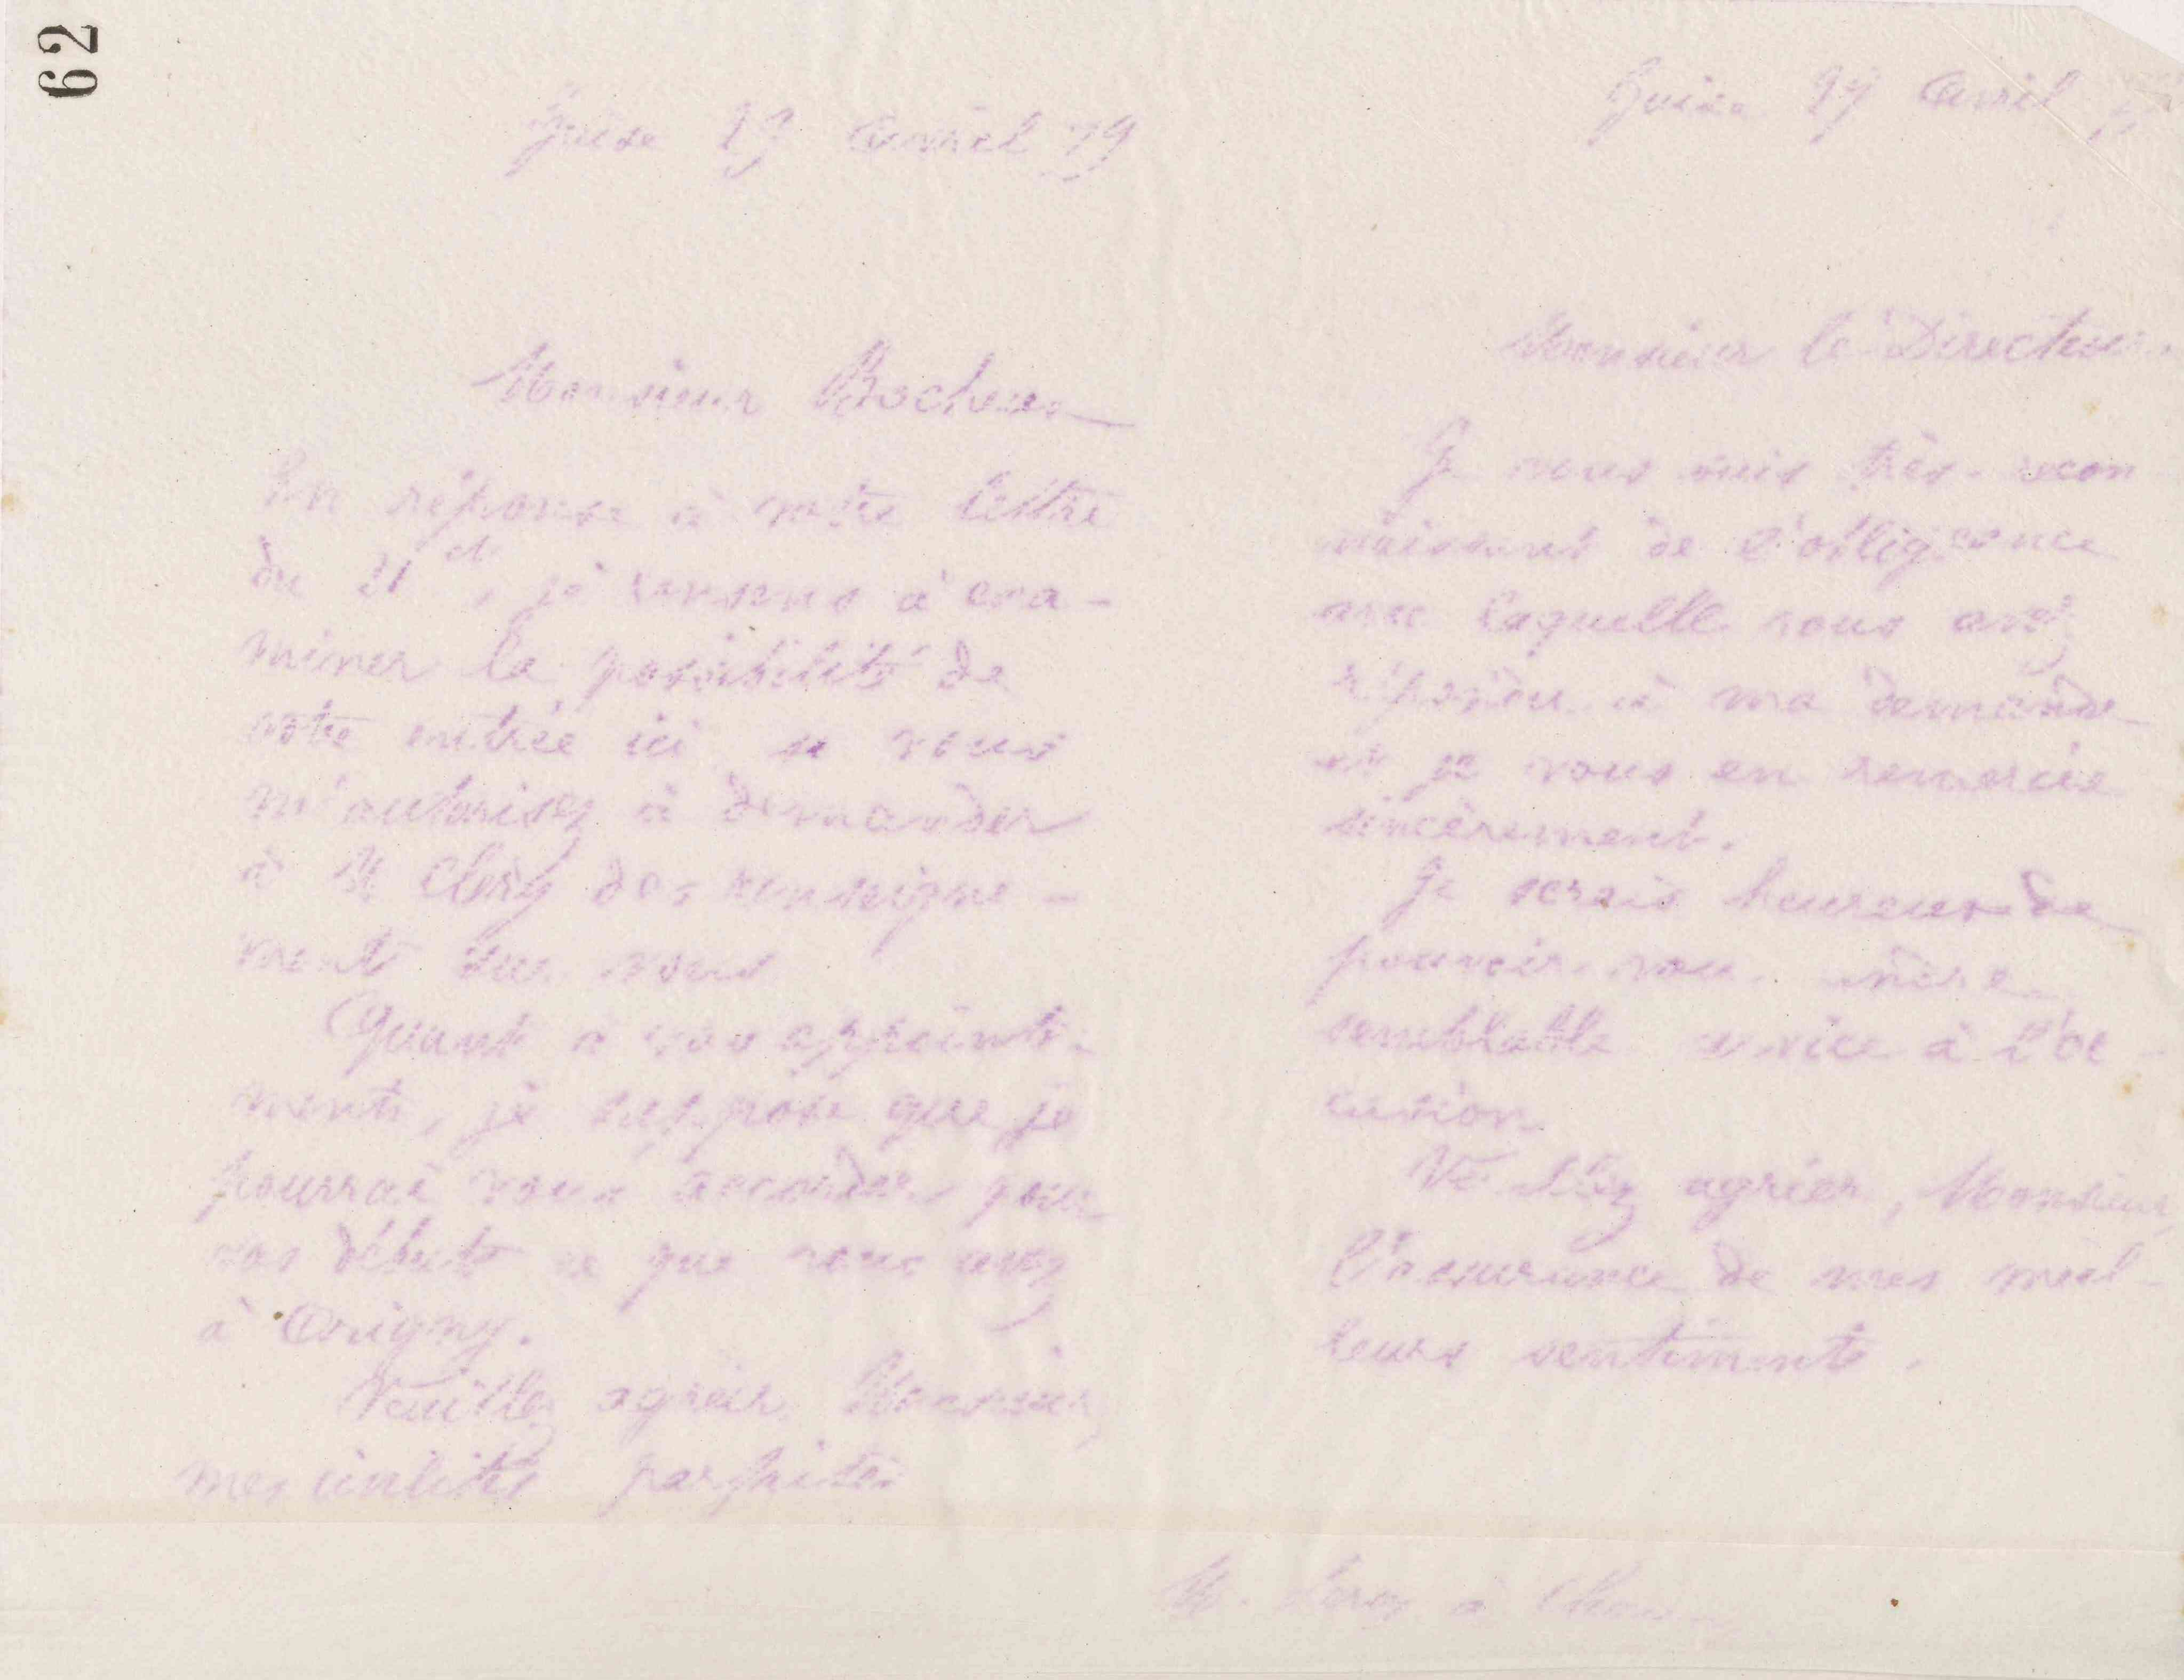 62
Guise 29 Avril 79
Monsieur
En réponse à votre lettre
du 21 ct, je consens à exa-
miner la possibilité de
votre entrée ici si vous
m'autorisez à demander
à M Cléry des renseigne-
ments sur vous
Quant à vos appointe-
ments, je suppose que je
pourrai vous accorder pour
vos débuts ce que vous avez
à Origny.
Veuillez agréer, Monsieur,
mes civilités parfaites
Guise Avril
Monsieur le Directeur,
Je vous suis très-recon
naissant de l'obligeance
avec laquelle vous avez
répondu à ma demande
et je vous en remercie
sincèrement.
Je serais heureux de
pouvoir vous
semblable service à l'oc-
casion
Veuillez agréer, Monsieur,
l'assurance de mes meil-
leurs sentiments.
M. Leroy à